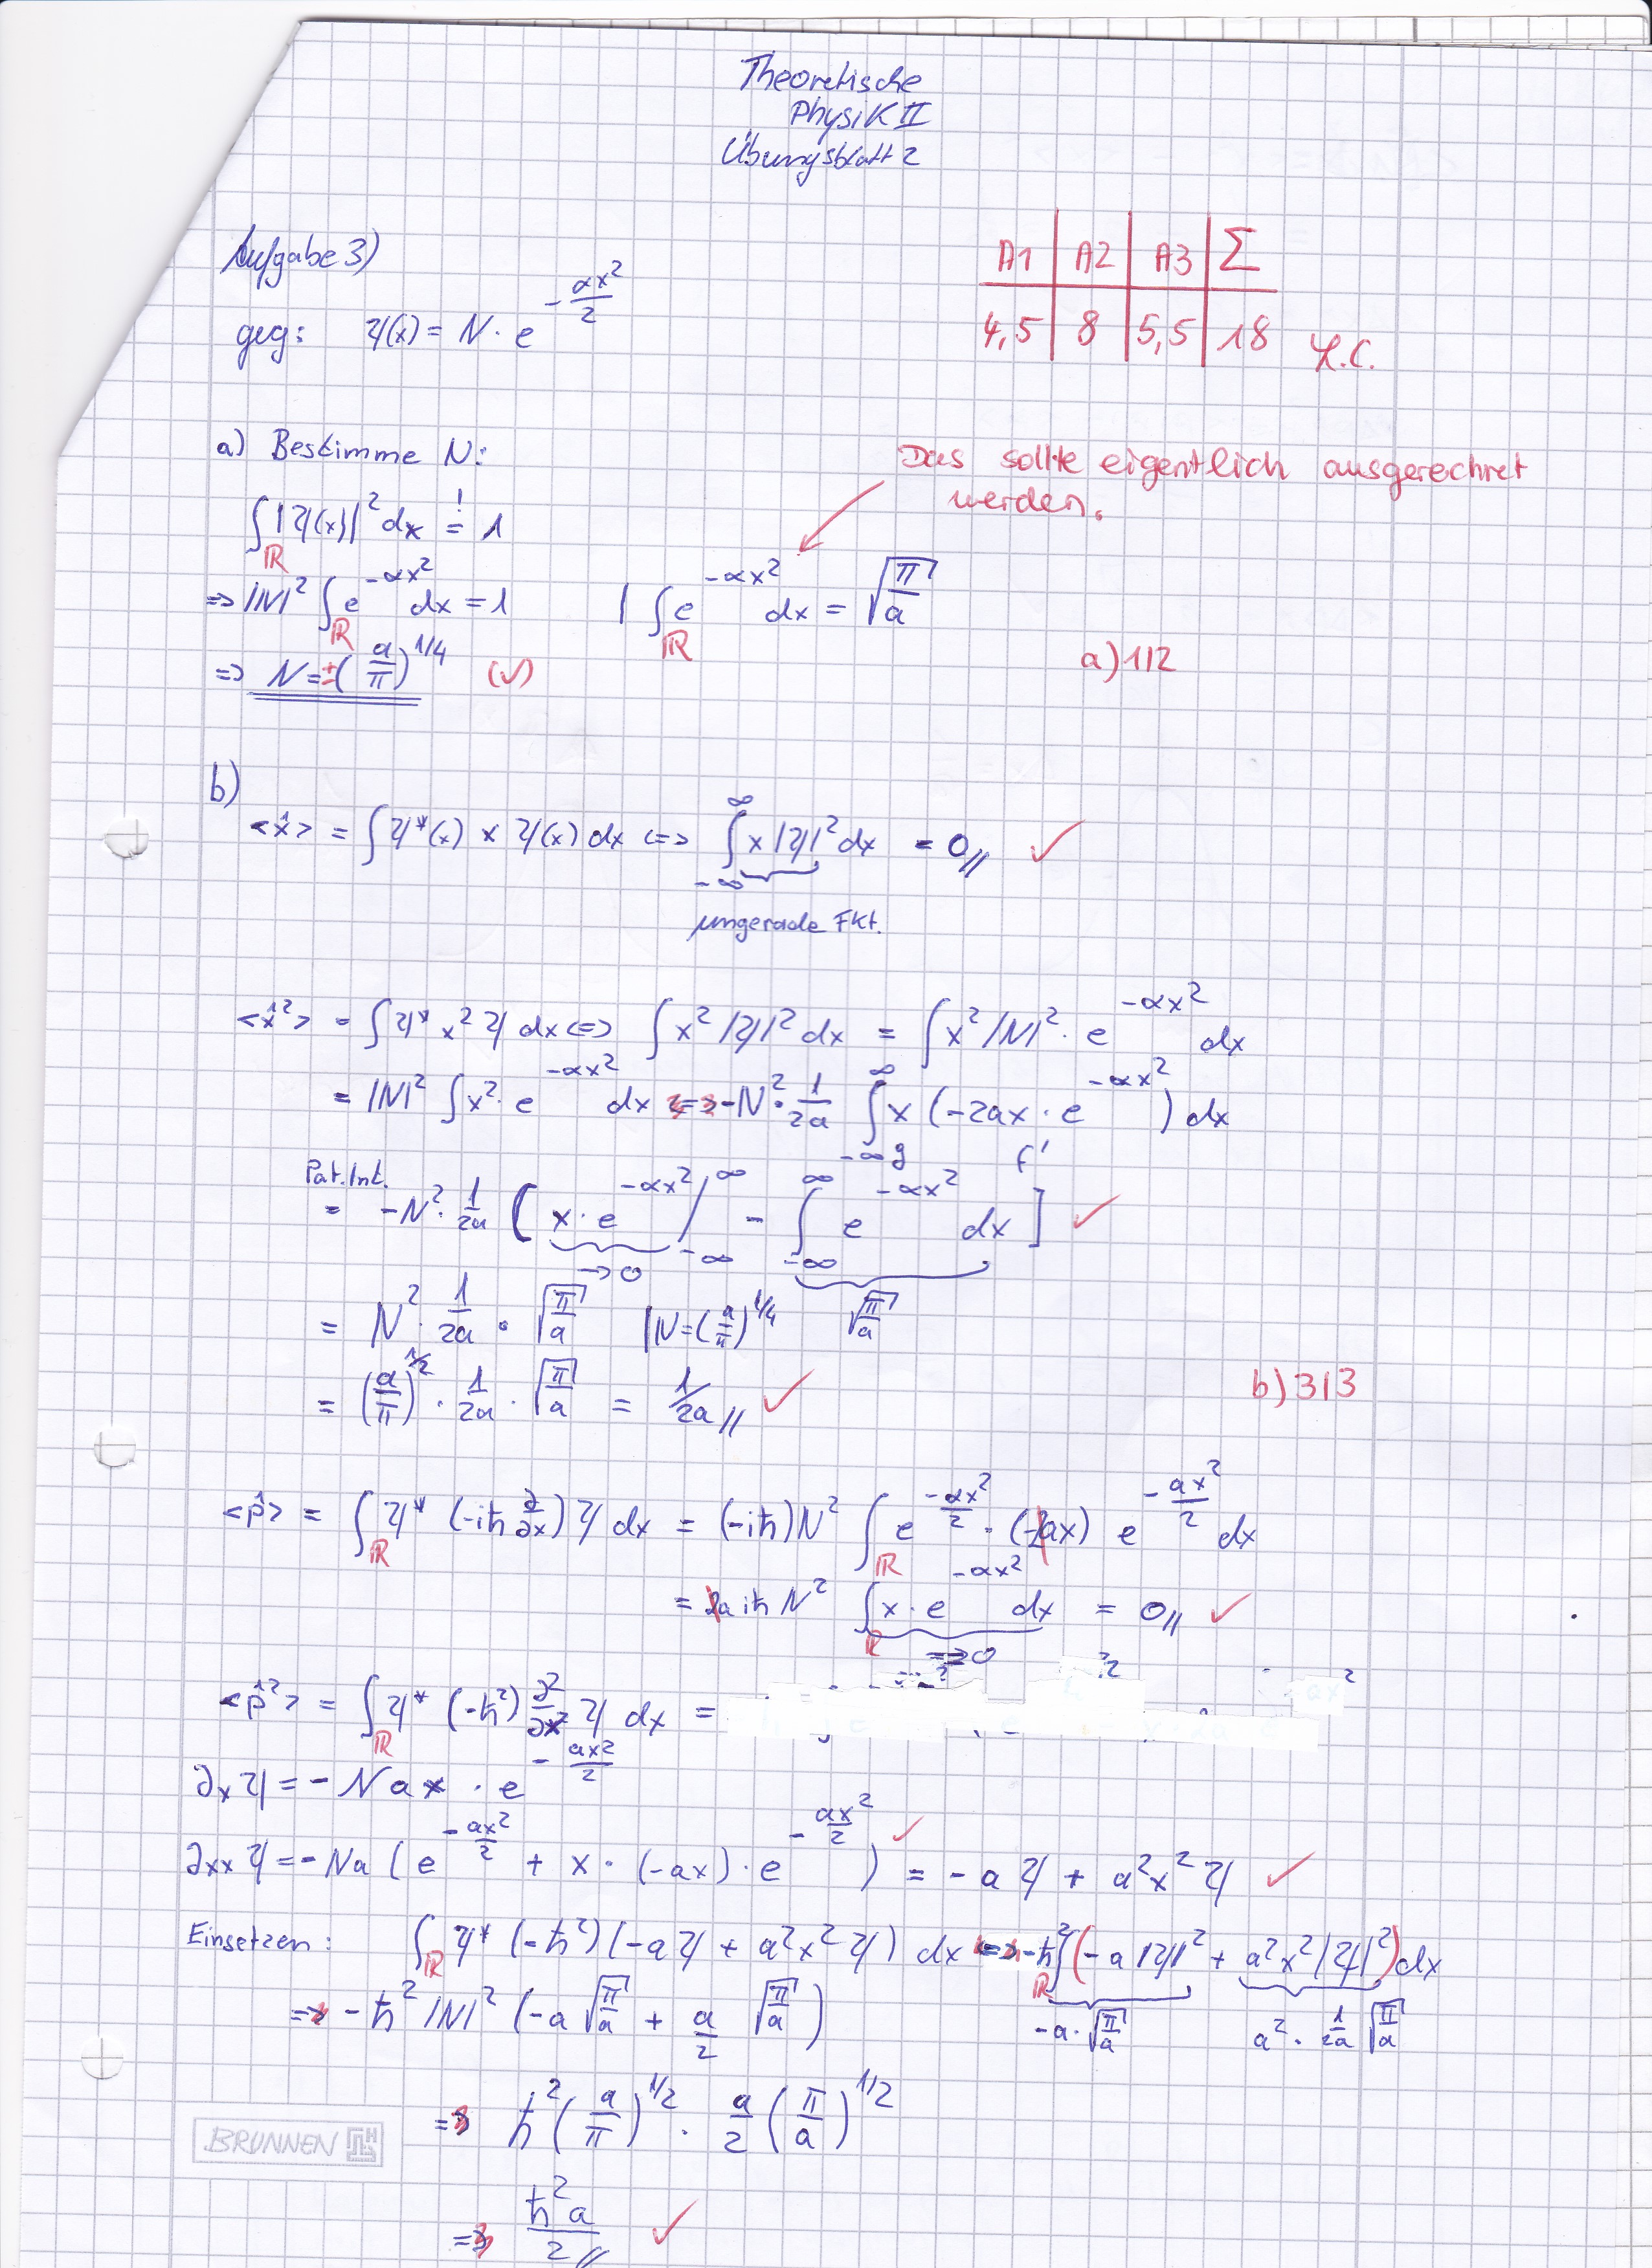 Theoretische
Physik II
Übungsblatt 2
Aufgabe 3)
A1 | A2 | A3 | Σ
4,5 | 8 | 5,5 | 18
geg: ψ(x) = N · e^{-αx²/2}
a) Bestimme N:
Das sollte eigentlich ausgerechnet
werden.
∫_ℝ |ψ(x)|² dx =! 1
=> |N|² ∫_ℝ e^{-αx²} dx = 1 | ∫_ℝ e^{-αx²} dx = √(π/a)
=> N = ±(a/π)^{1/4} (✓) a) 1/2
b)
<x̂> = ∫ψ*(x) x ψ(x) dx <=> ∫_{-∞}^{∞} x |ψ|² dx = 0 ✓
ungerade Fkt.
<x̂²> = ∫ψ* x² ψ dx <=> ∫x² |ψ|² dx = ∫x² |N|² · e^{-αx²} dx
= |N|² ∫x² · e^{-αx²} dx = -N² · 1/2a ∫_{-∞}^{∞} x (-2ax · e^{-αx²}) dx
g f'
Pat. Int.
= -N² · 1/2a [x · e^{-αx²} |_{-∞}^{∞} - ∫_{-∞}^{∞} e^{-αx²} dx] ✓
→0 √(π/a)
= N² · 1/2a · √(π/a) | N = (a/π)^{1/4}
= (a/π)^{1/2} · 1/2a · √(π/a) = 1/2a ✓ b) 3/3
<p̂> = ∫_ℝ ψ* (-iħ ∂/∂x) ψ dx = (-iħ)N² ∫_ℝ e^{-αx²/2} · (-2ax) e^{-ax²/2} dx
= 2aiħ N² ∫_ℝ x · e^{-αx²} dx = 0 ✓
=>0
<p̂²> = ∫_ℝ ψ* (-ħ²) ∂²/∂x² ψ dx =
∂x ψ = -N a x · e^{-ax²/2}
∂xx ψ = -Na (e^{-ax²/2} + x · (-ax) · e^{-ax²/2}) ✓ = -aψ + a²x²ψ ✓
Einsetzen: ∫_ℝ ψ* (-ħ²)(-aψ + a²x²ψ) dx = -ħ² ∫_ℝ (-a|ψ|² + a²x²|ψ|²) dx
-a · √(π/a) a² · 1/2a √(π/a)
= -ħ² |N|² (-a √(π/a) + a/2 √(π/a))
= ħ² (a/π)^{1/2} · a/2 (π/a)^{1/2}
= ħ²a/2 ✓
BRUNNEN